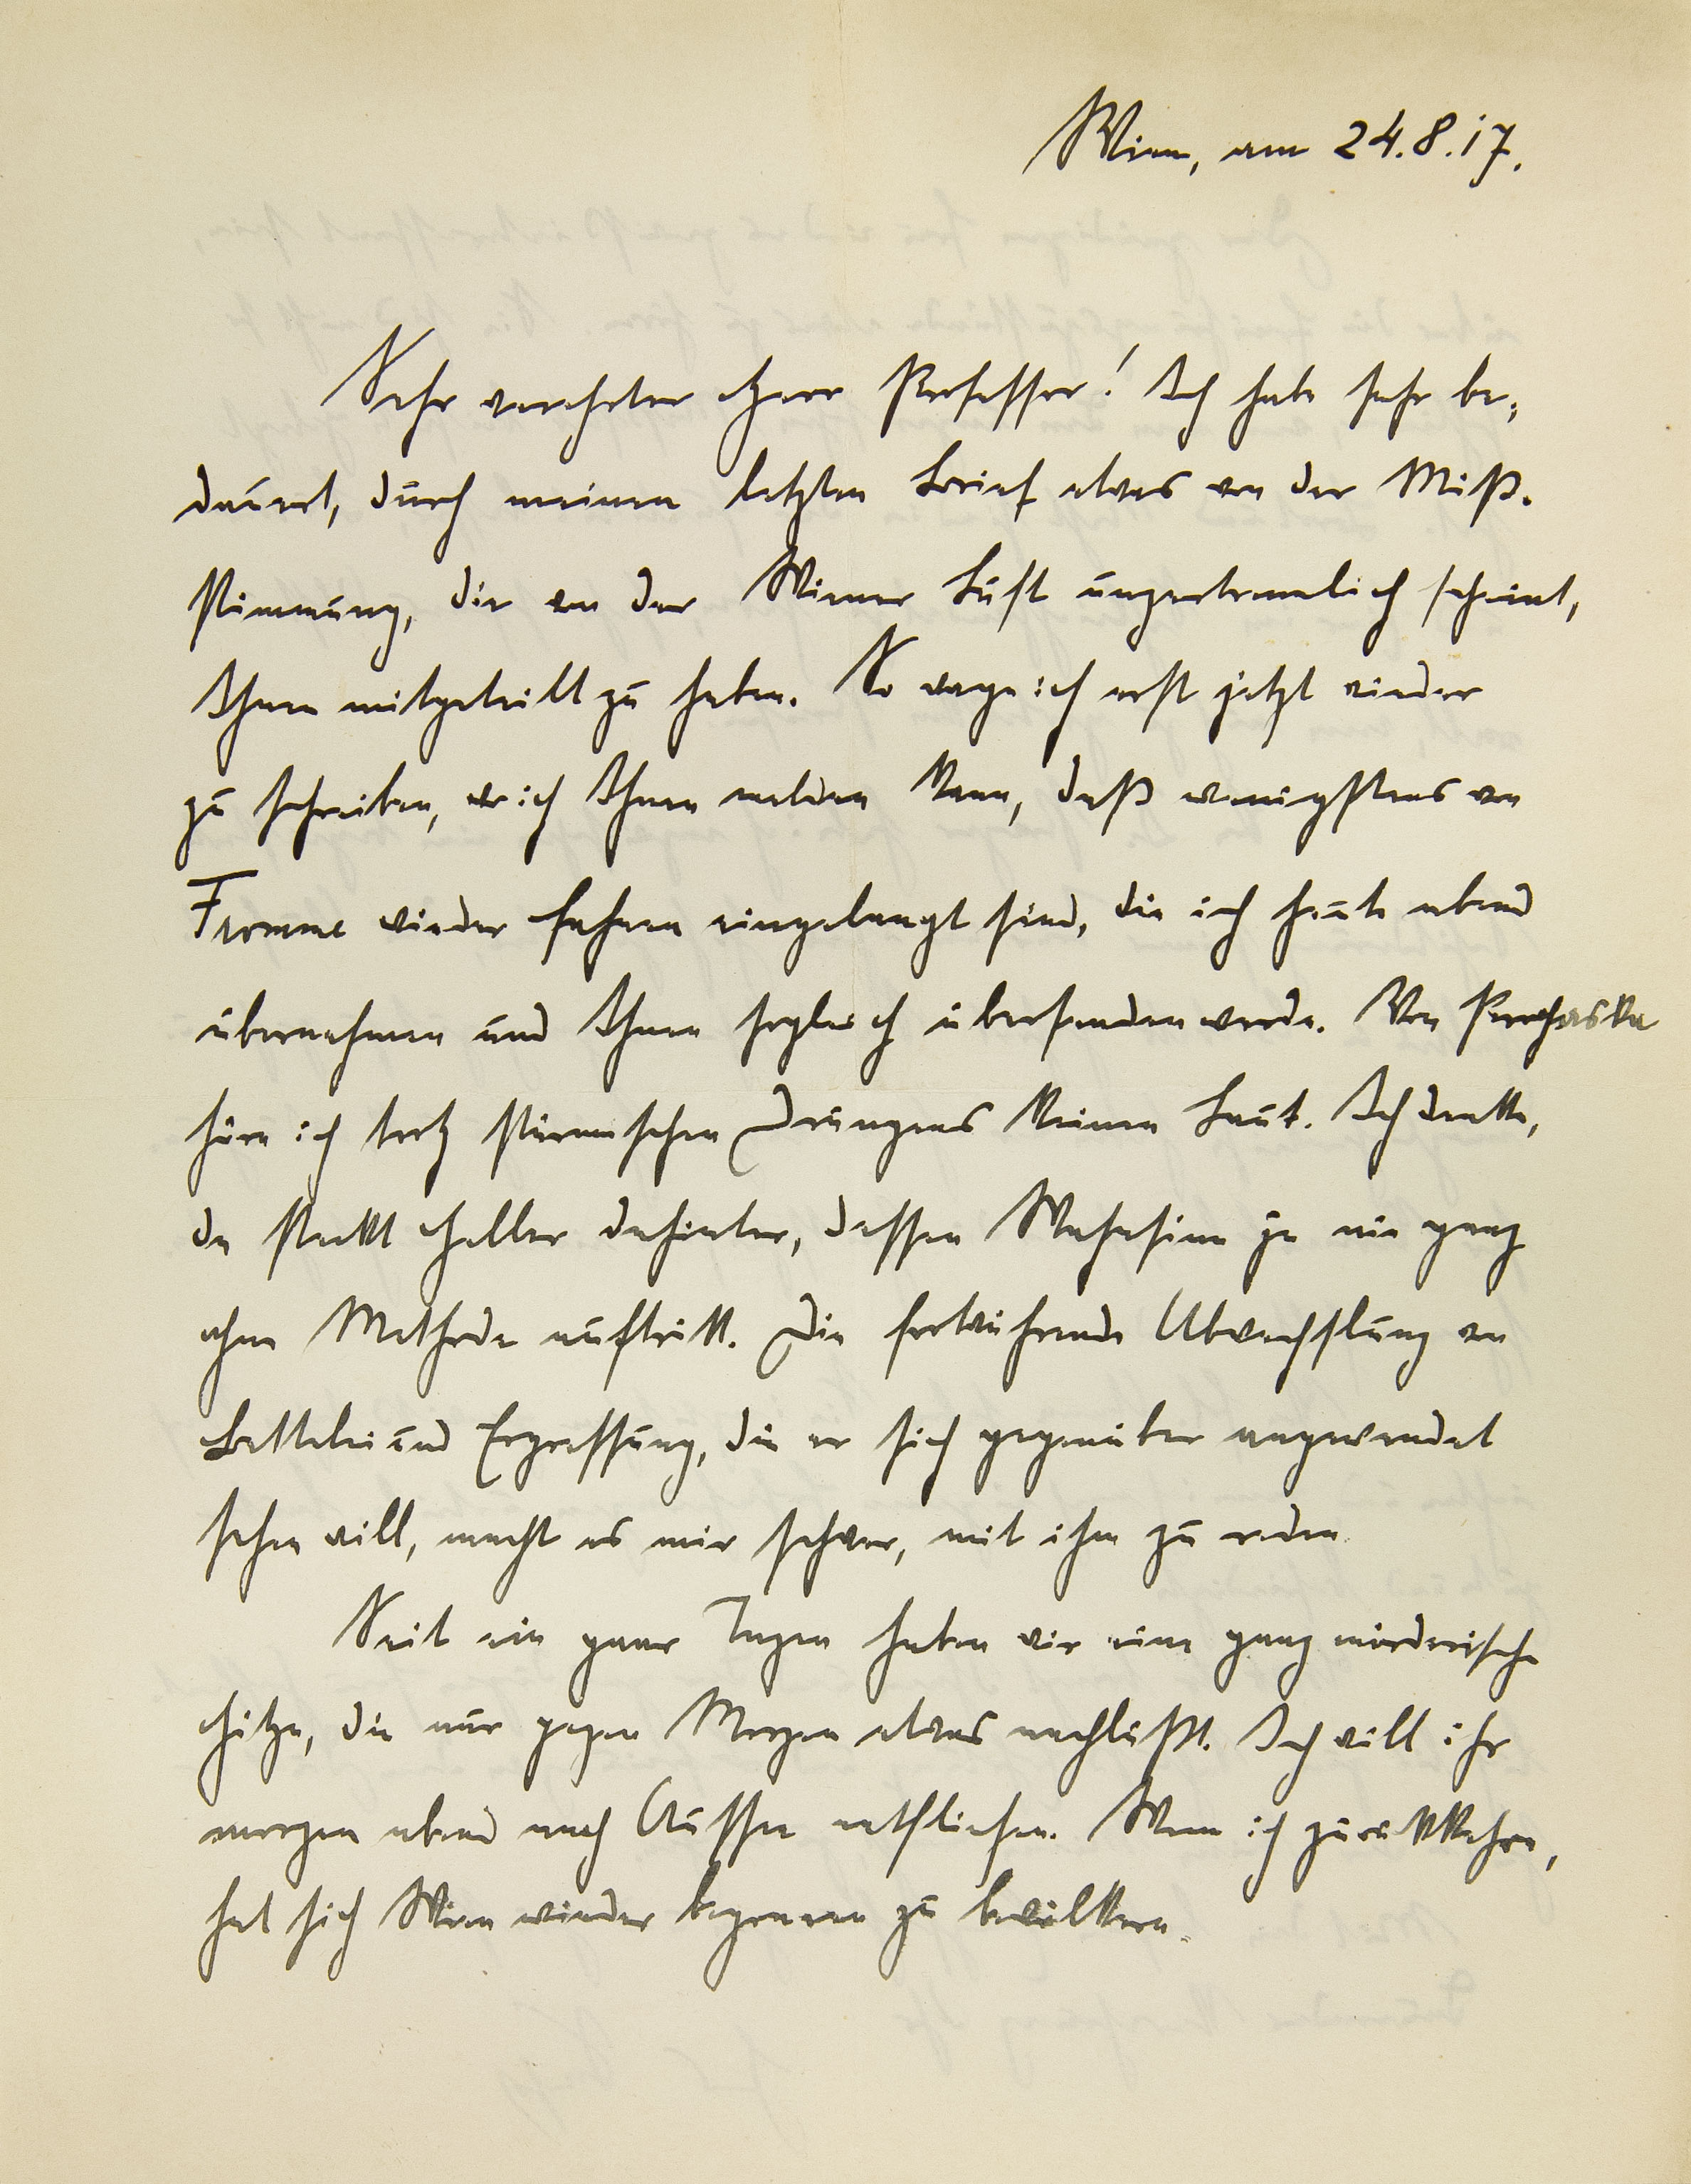 Wien, am 24.8.17.
Sehr verehrter Herr Professor! Ich habe sehr be-
dauert, durch meinen letzten Brief etwas von der Miß-
stimmung, die von der Wiener Luft unzertrennlich scheint,
Ihnen mitgeteilt zu haben. So wage ich erst jetzt wieder
zu schreiben, wo ich Ihnen melden kann, daß wenigstens von
Fromme wieder Fahnen eingelangt sind, die ich heute abend
übernehmen und Ihnen sogleich übersenden werde. Von Prochaska
höre ich trotz stürmischen Drängens keinen Laut. Ich denke,
da steckt Heller dahinter, dessen Wahnsinn ja nie ganz
ohne Methode auftritt. Die fortwährende Abwechslung von
Bettelei und Erpressung, die er sich gegenüber angewendet
sehen will, macht es mir schwer, mit ihm zu reden.
Seit ein paar Tagen haben wir eine ganz mörderische
Hitze, die nur gegen Morgen etwas nachläßt. Ich will ihr
morgen abend nach Aussee entfliehen. Wenn ich zurückkehre,
hat sich Wien wieder begonnen zu bevölkern.